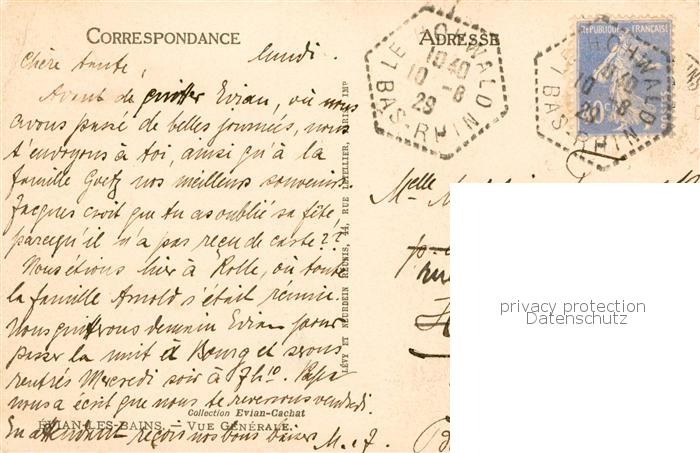 CORRESPONDANCE
lundi.
Chère tante,
Avant de quitter Evian, où nous
avons passé de belles journées, nous
t'envoyons à toi, ainsi qu'à la
famille Goetz nos meilleurs souvenirs.
Jacques croit que tu as oublié sa fête
parcequ'il n'a pas reçu de carte??
Nous étions hier à Rolle, où toute
la famille Arnold s'était réunie.
Nous quitterons demain Evian pour
passer la nuit à Bourg et serons
rentrés Mercredi soir à 7h10. Papa
nous a écrit que nous te reverrons vendredi.
Collection Evian-Cachat
ÉVIAN-LES-BAINS. — VUE GÉNÉRALE.
En attendant reçois nos bons baisers M. et J.
LÉVY ET NEURDEIN RÉUNIS, 44, RUE LETELLIER, PARIS IMP
ADRESSE
LE HOHWALD
10 40
10 -8
29
BAS-RHIN
RÉPUBLIQUE FRANÇAISE
POSTES
LE HOHWALD
10 40
10 -8
29
BAS-RHIN
Melle
privacy protection
Datenschutz